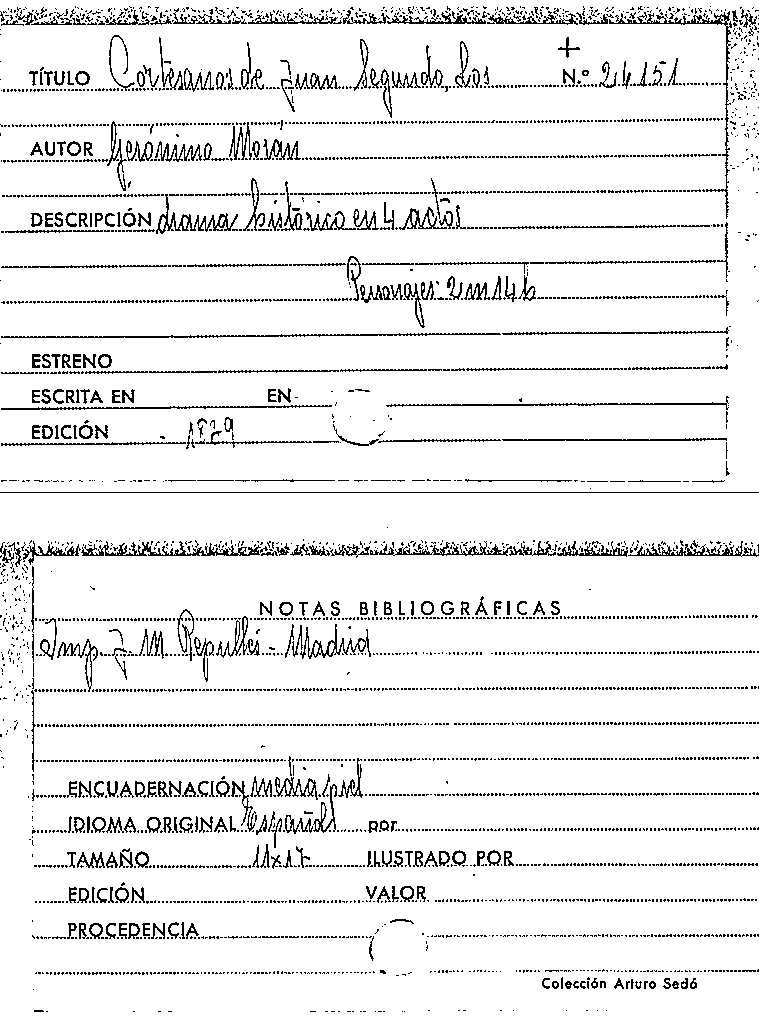 +
TÍTULO Cortesanos de Juan Segundo, Los N.º 24151
AUTOR Gerónimo Morán
DESCRIPCIÓN drama histórico en 4 actos
Personajes: 2 m 14 h
ESTRENO
ESCRITA EN EN
EDICIÓN
NOTAS BIBLIOGRÁFICAS
Imp. J. M Repullés - Madrid
ENCUADERNACIÓN media piel
IDIOMA ORIGINAL Español por
TAMAÑO 11x17 ILUSTRADO POR
EDICIÓN VALOR
PROCEDENCIA
Colección Arturo Sedó